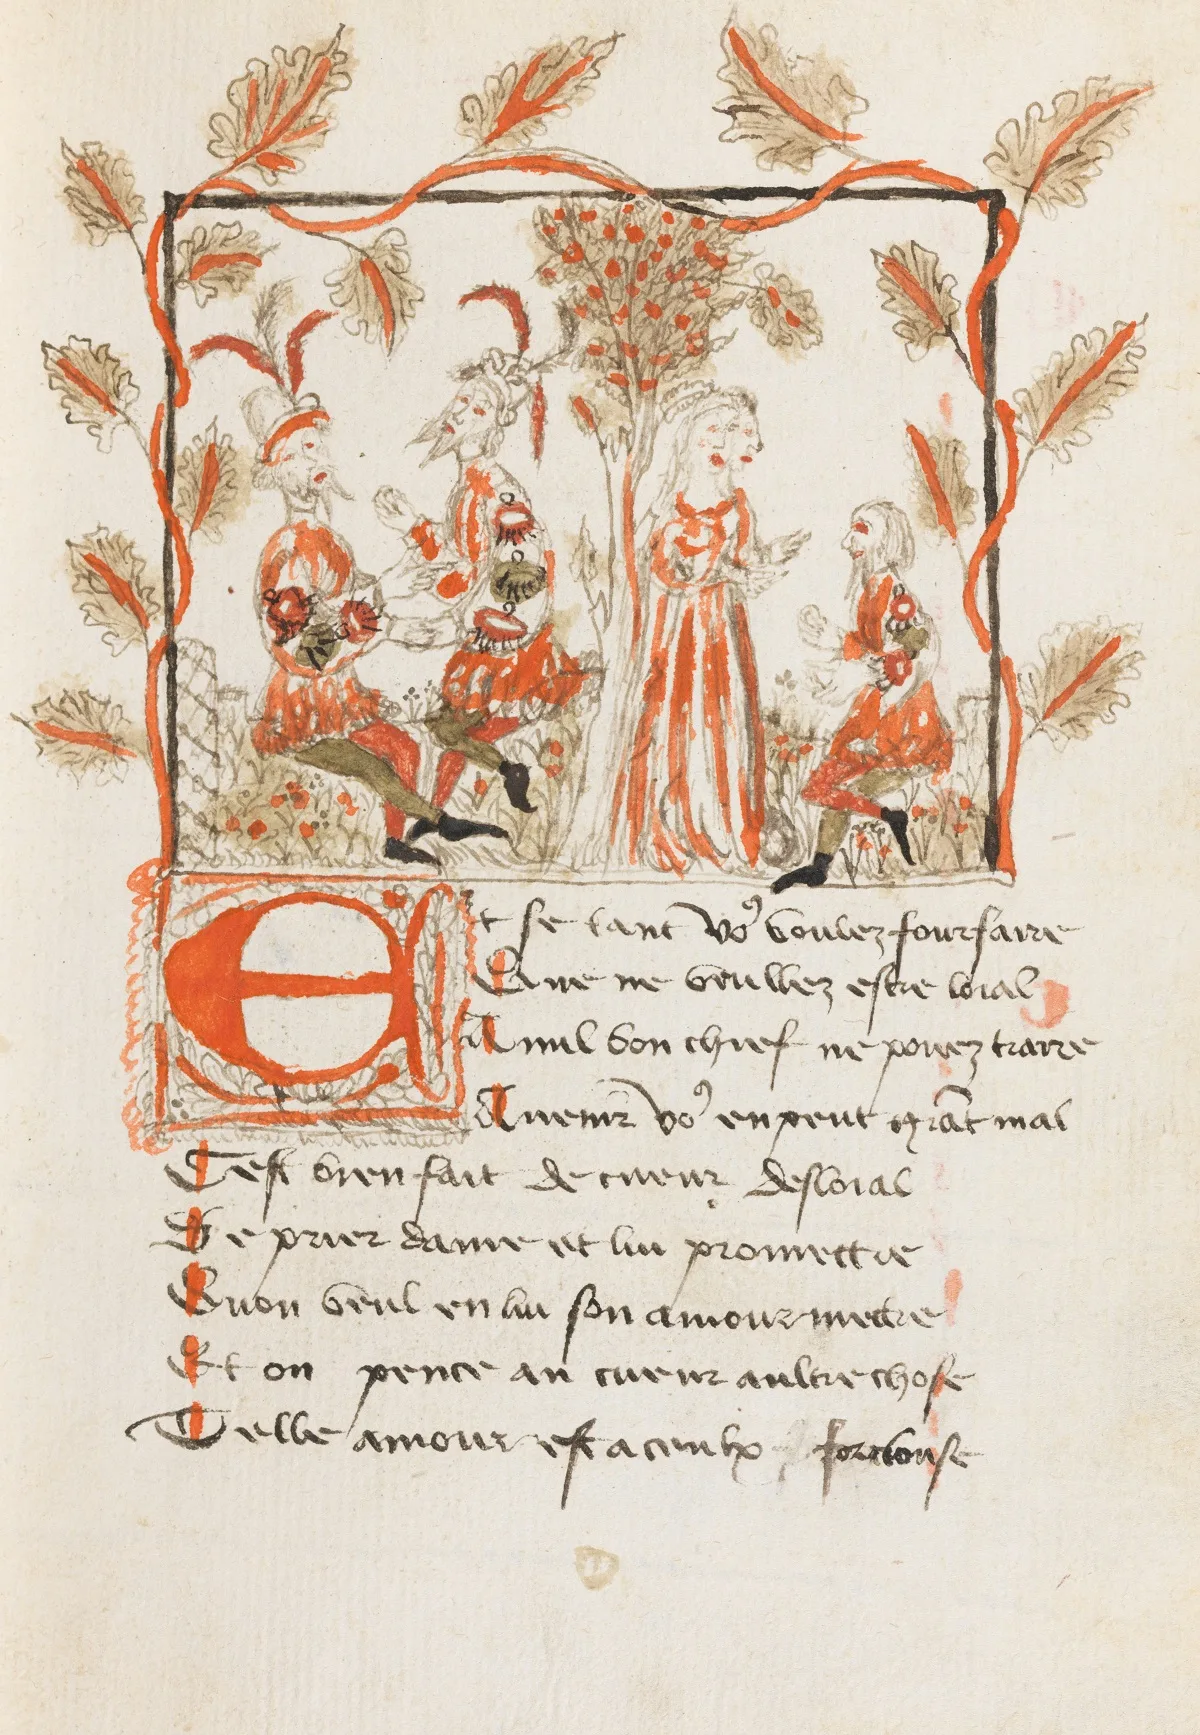 Et se tant vo⁹ voulez fourfaire
Que ne veullez estre loial
A nul bon chief ne povez traire
Avenir vo⁹ en peut grāt mal
Cest bien fait de cueur desloial
De prier dame et lui promettre
Quon veul en lui son amour mettre
Et on pence au cueur aultre chose
Telle amour est a ceulx